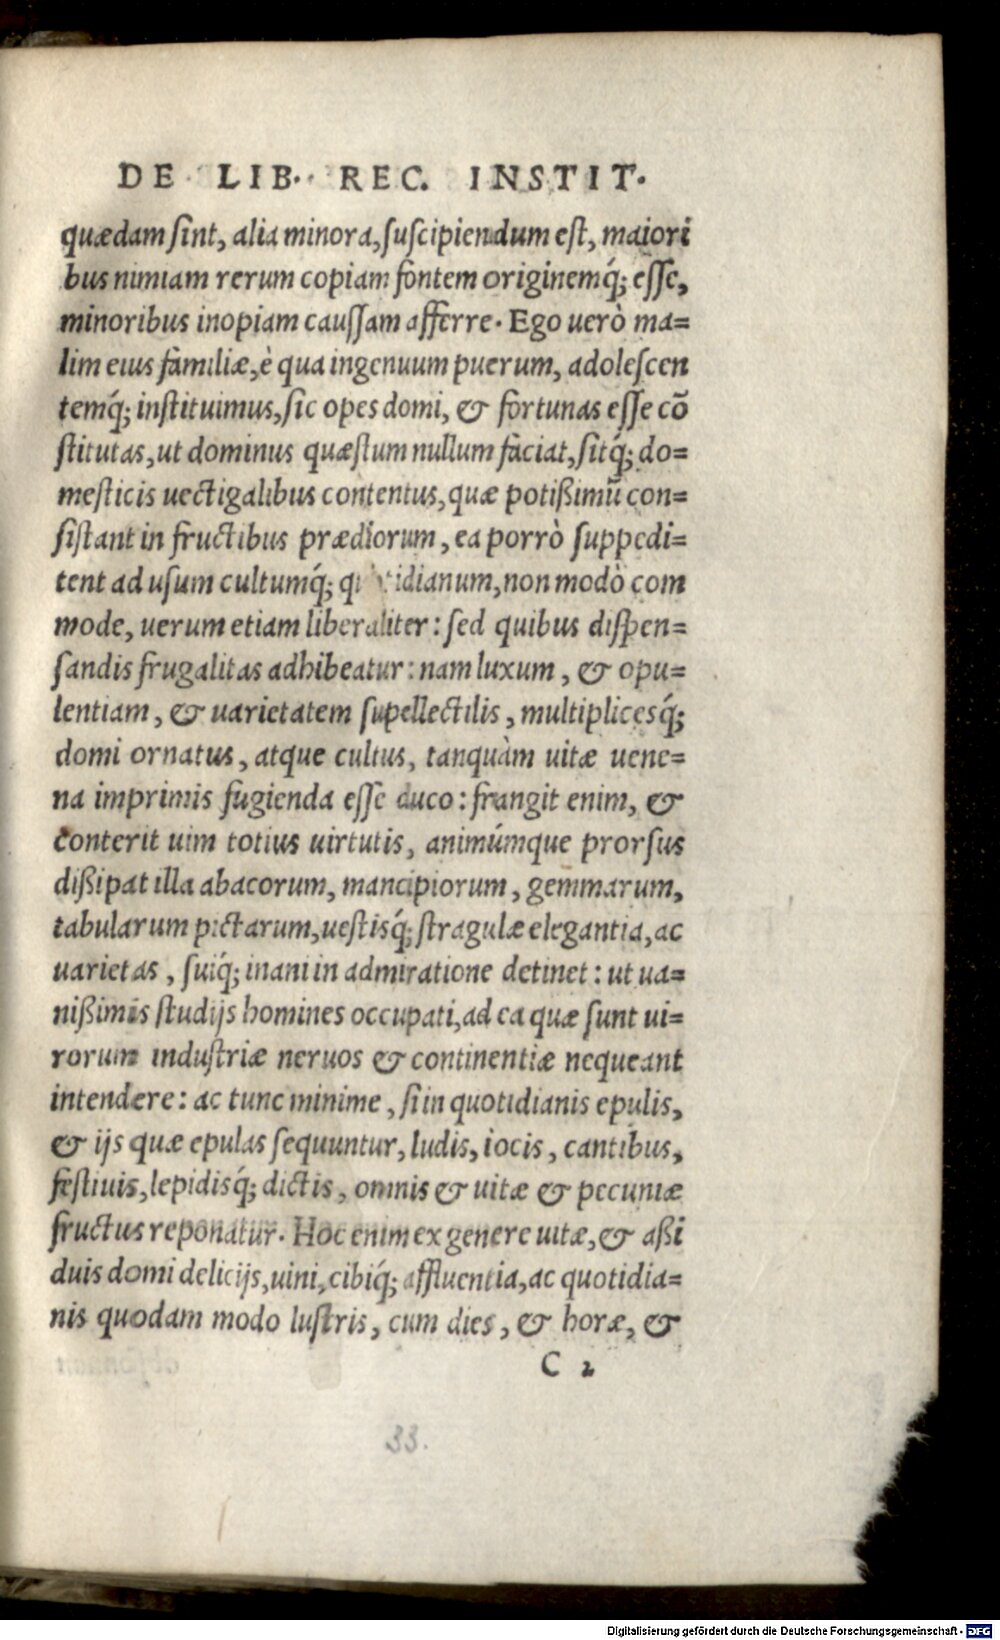 DE LIB. REC. INSTIT.
quædam sint, alia minora, suscipiendum est, maiori
bus nimiam rerum copiam fontem originemq́; esse,
minoribus inopiam caussam afferre. Ego uerò ma=
lim eius familiæ, è qua ingenuum puerum, adolescen
temq́; instituimus, sic opes domi, & fortunas esse cō
stitutas, ut dominus quæstum nullum faciat, sitq́; do=
mesticis uectigalibus contentus, quæ potißimū con=
sistant in fructibus prædiorum, ea porrò suppedi=
tent ad usum cultumq́; quotidianum, non modò com
mode, uerum etiam liberaliter: sed quibus dispen=
sandis frugalitas adhibeatur: nam luxum, & opu=
lentiam, & uarietatem supellectilis, multiplicesq́;
domi ornatus, atque cultus, tanquàm uitæ uene=
na imprimis fugienda esse duco: frangit enim, &
conterit uim totius uirtutis, animúmque prorsus
dißipat illa abacorum, mancipiorum, gemmarum,
tabularum pictarum, uestisq́; stragulæ elegantia, ac
uarietas, suiq́; inani in admiratione detinet: ut ua=
nißimis studijs homines occupati, ad ea quæ sunt ui=
rorum industriæ neruos & continentiæ nequeant
intendere: ac tunc minime, si in quotidianis epulis,
& ijs quæ epulas sequuntur, ludis, iocis, cantibus,
festiuis, lepidisq́; dictis, omnis & uitæ & pecuniæ
fructus reponatur. Hoc enim ex genere uitæ, & aßi
duis domi delicijs, uini, cibiq́; affluentia, ac quotidia=
nis quodam modo lustris, cum dies, & horæ, &
C 2
33.
Digitalisierung gefördert durch die Deutsche Forschungsgemeinschaft - DFG